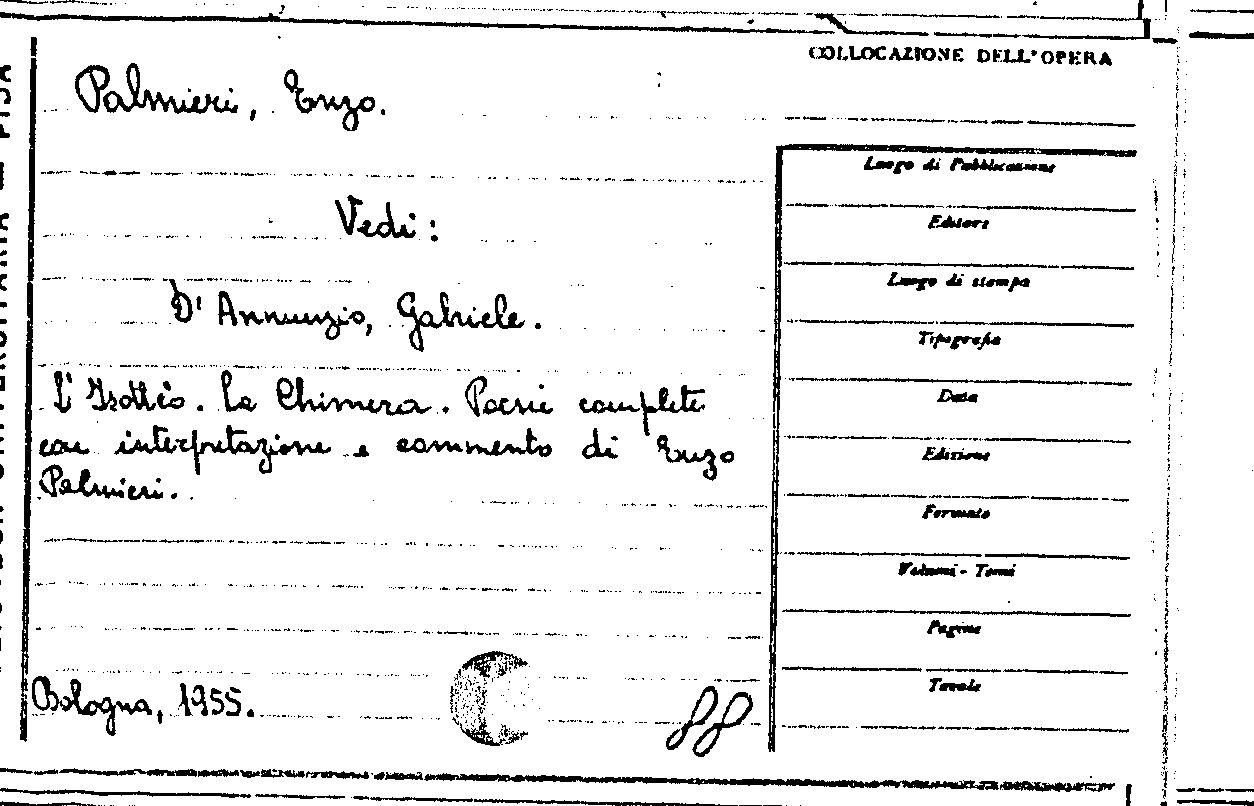 COLLOCAZIONE DELL'OPERA
Palmieri, Enzo.
Vedi:
D'Annunzio, Gabriele.
L'Isottèo. La Chimera. Poesie complete
con interpretazione e commento di Enzo
Palmieri.
Bologna, 1955.
Luogo di Pubblicazione
Editore
Luogo di stampa
Tipografia
Data
Edizione
Formato
Volumi - Tomi
Pagine
Tavole
PISA